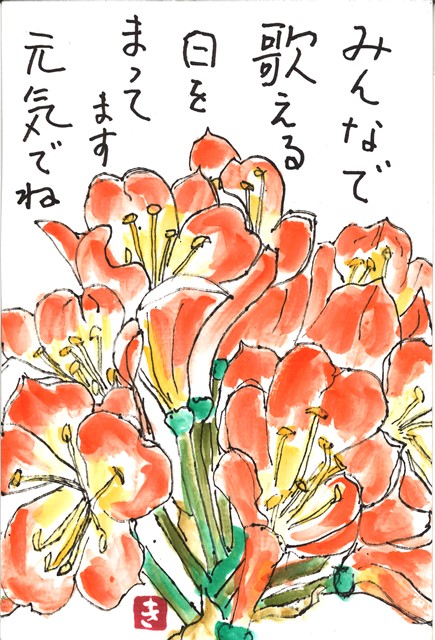 みんなで
歌える
日を
まって
ます
元気でね
き